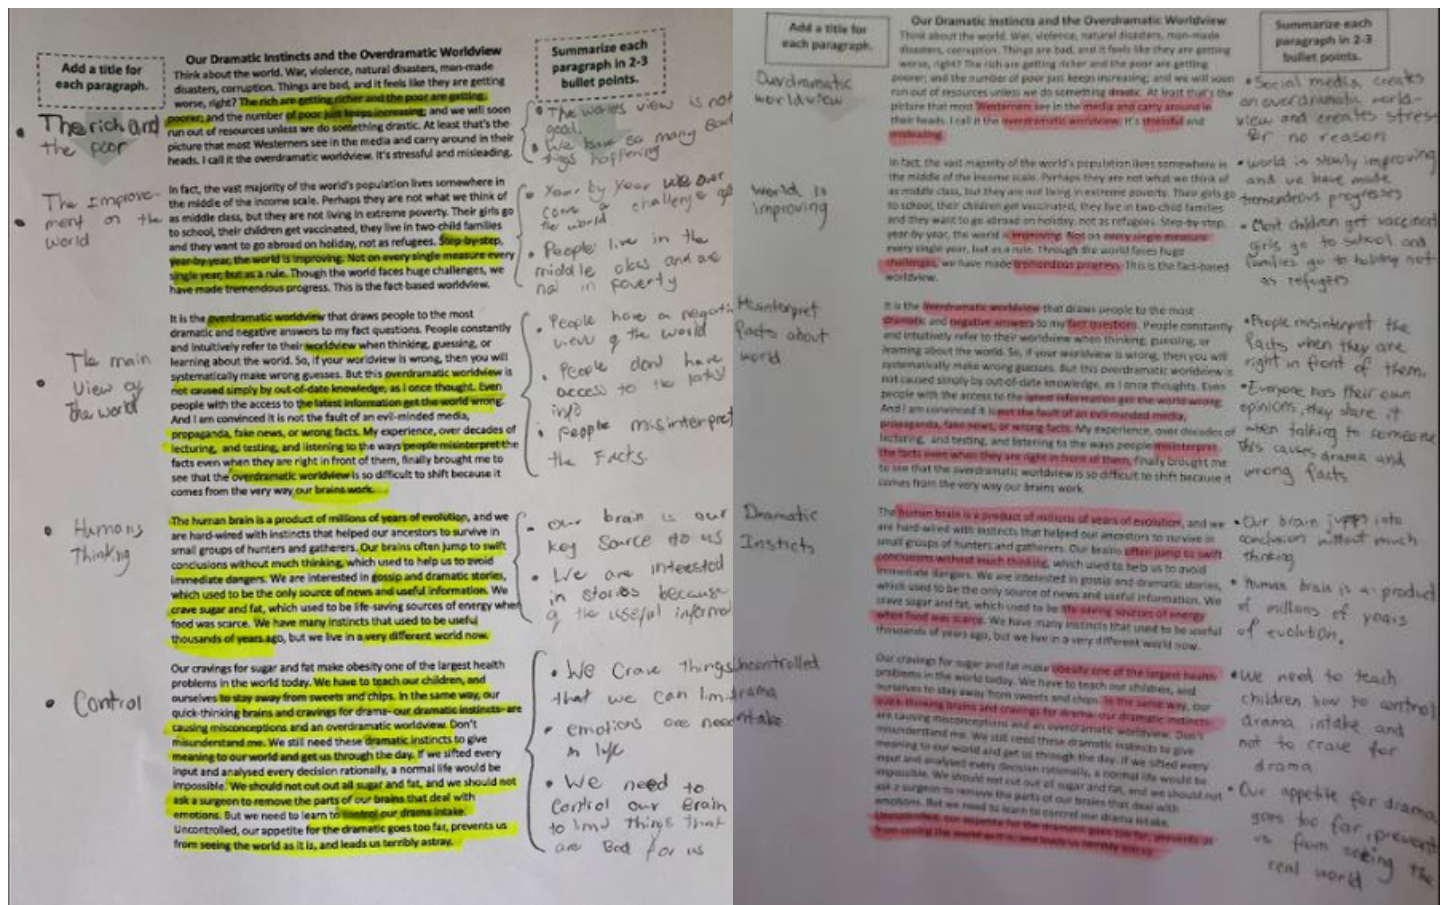 Add a title for
each paragraph.
Our Dramatic Instincts and the Overdramatic Worldview
Summarize each
paragraph in 2-3
bullet points.
Think about the world. War, violence, natural disasters, man-made
disasters, corruption. Things are bad, and it feels like they are getting
worse, right? The rich are getting richer and the poor are getting
poorer; and the number of poor just keeps increasing; and we will soon
run out of resources unless we do something drastic. At least that's the
picture that most Westerners see in the media and carry around in their
heads. I call it the overdramatic worldview. It's stressful and misleading.
• The rich and
the poor
• The worlds view is not
goal.
• We have so many Bad
things happening
In fact, the vast majority of the world's population lives somewhere in
the middle of the income scale. Perhaps they are not what we think of
as middle class, but they are not living in extreme poverty. Their girls go
to school, their children get vaccinated, they live in two-child families
and they want to go abroad on holiday, not as refugees. Step-by-step,
year-by-year, the world is improving. Not on every single measure every
single year, but as a rule. Though the world faces huge challenges, we
have made tremendous progress. This is the fact-based worldview.
• The Improve-
ment on the
world
• Year by Year we over
come a challenge of
the world
• People live in the
middle class and are
not in poverty
It is the overdramatic worldview that draws people to the most
dramatic and negative answers to my fact questions. People constantly
and intuitively refer to their worldview when thinking, guessing, or
learning about the world. So, if your worldview is wrong, then you will
systematically make wrong guesses. But this overdramatic worldview is
not caused simply by out-of-date knowledge, as I once thought. Even
people with the access to the latest information get the world wrong.
And I am convinced it is not the fault of an evil-minded media,
propaganda, fake news, or wrong facts. My experience, over decades of
lecturing, and testing, and listening to the ways people misinterpret the
facts even when they are right in front of them, finally brought me to
see that the overdramatic worldview is so difficult to shift because it
comes from the very way our brains work.
• The main
View of
the world
• People have a negati
view of the world
• People dont have
access to the latest
info
• people misinterpret
the Facts
The human brain is a product of millions of years of evolution, and we
are hard-wired with instincts that helped our ancestors to survive in
small groups of hunters and gatherers. Our brains often jump to swift
conclusions without much thinking, which used to help us to avoid
immediate dangers. We are interested in gossip and dramatic stories,
which used to be the only source of news and useful information. We
crave sugar and fat, which used to be life-saving sources of energy when
food was scarce. We have many instincts that used to be useful
thousands of years ago, but we live in a very different world now.
• Humans
Thinking
• our brain is our
key Source to us
• We are interested
in stories because
of the useful informa
Our cravings for sugar and fat make obesity one of the largest health
problems in the world today. We have to teach our children, and
ourselves to stay away from sweets and chips. In the same way, our
quick-thinking brains and cravings for drama–our dramatic instincts–are
causing misconceptions and an overdramatic worldview. Don't
misunderstand me. We still need these dramatic instincts to give
meaning to our world and get us through the day. If we sifted every
input and analysed every decision rationally, a normal life would be
impossible. We should not cut out all sugar and fat, and we should not
ask a surgeon to remove the parts of our brains that deal with
emotions. But we need to learn to control our drama intake.
Uncontrolled, our appetite for the dramatic goes too far, prevents us
from seeing the world as it is, and leads us terribly astray.
• Control
• We Crave things
that we can limi
• emotions are need
in life
• We need to
Control our Brain
to limd things that
are Bad for us
Add a title for
each paragraph.
Our Dramatic Instincts and the Overdramatic Worldview
Summarize each
paragraph in 2-3
bullet points.
Think about the world. War, violence, natural disasters, man-made
disasters, corruption. Things are bad, and it feels like they are getting
worse, right? The rich are getting richer and the poor are getting
poorer; and the number of poor just keeps increasing; and we will soon
run out of resources unless we do something drastic. At least that's the
picture that most Westerners see in the media and carry around in
their heads. I call it the overdramatic worldview. It's stressful and
misleading.
Overdramatic
worldview
• Social media creates
an overdramatic world-
view and creates stress
for no reason
In fact, the vast majority of the world's population lives somewhere in
the middle of the income scale. Perhaps they are not what we think of
as middle class, but they are not living in extreme poverty. Their girls go
to school, their children get vaccinated, they live in two-child families
and they want to go abroad on holiday, not as refugees. Step-by-step,
year-by-year, the world is improving. Not on every single measure
every single year, but as a rule. Though the world faces huge
challenges, we have made tremendous progress. This is the fact-based
worldview.
World is
improving
• world is slowly improving
and we have made
tremendous progresses
• Most children get vaccined
girls go to school and
families go to holiday not
as refugees
It is the overdramatic worldview that draws people to the most
dramatic and negative answers to my fact questions. People constantly
and intuitively refer to their worldview when thinking, guessing, or
learning about the world. So, if your worldview is wrong, then you will
systematically make wrong guesses. But this overdramatic worldview is
not caused simply by out-of-date knowledge, as I once thoughts. Even
people with the access to the latest information get the world wrong.
And I am convinced it is not the fault of an evil-minded media,
propaganda, fake news, or wrong facts. My experience, over decades of
lecturing, and testing, and listening to the ways people misinterpret
the facts even when they are right in front of them, finally brought me
to see that the overdramatic worldview is so difficult to shift because it
comes from the very way our brains work.
Misinterpret
facts about
world
• People misinterpret the
facts when they are
right in front of them.
• Everyone has their own
opinions, they share it
when talking to someone
this causes drama and
wrong facts
The human brain is a product of millions of years of evolution, and we
are hard-wired with instincts that helped our ancestors to survive in
small groups of hunters and gatherers. Our brains often jump to swift
conclusions without much thinking, which used to help us to avoid
immediate dangers. We are interested in gossip and dramatic stories,
which used to be the only source of news and useful information. We
crave sugar and fat, which used to be life-saving sources of energy
when food was scarce. We have many instincts that used to be useful
thousands of years ago, but we live in a very different world now.
Dramatic
Insticts
• Our brain jumps into
conclusion without much
thinking
• human brain is a product
of millions of years
of evolution.
Our cravings for sugar and fat make obesity one of the largest health
problems in the world today. We have to teach our children, and
ourselves to stay away from sweets and chips. In the same way, our
quick-thinking brains and cravings for drama–our dramatic instincts–
are causing misconceptions and an overdramatic worldview. Don't
misunderstand me. We still need these dramatic instincts to give
meaning to our world and get us through the day. If we sifted every
input and analysed every decision rationally, a normal life would be
impossible. We should not cut out all sugar and fat, and we should not
ask a surgeon to remove the parts of our brains that deal with
emotions. But we need to learn to control our drama intake.
Uncontrolled, our appetite for the dramatic goes too far, prevents us
from seeing the world as it is, and leads us terribly astray.
Uncontrolled
drama
intake
• We need to teach
children how to control
drama intake and
not to crave for
drama
• Our appetite for drama
goes too far, prevent
us from seeing the
real world